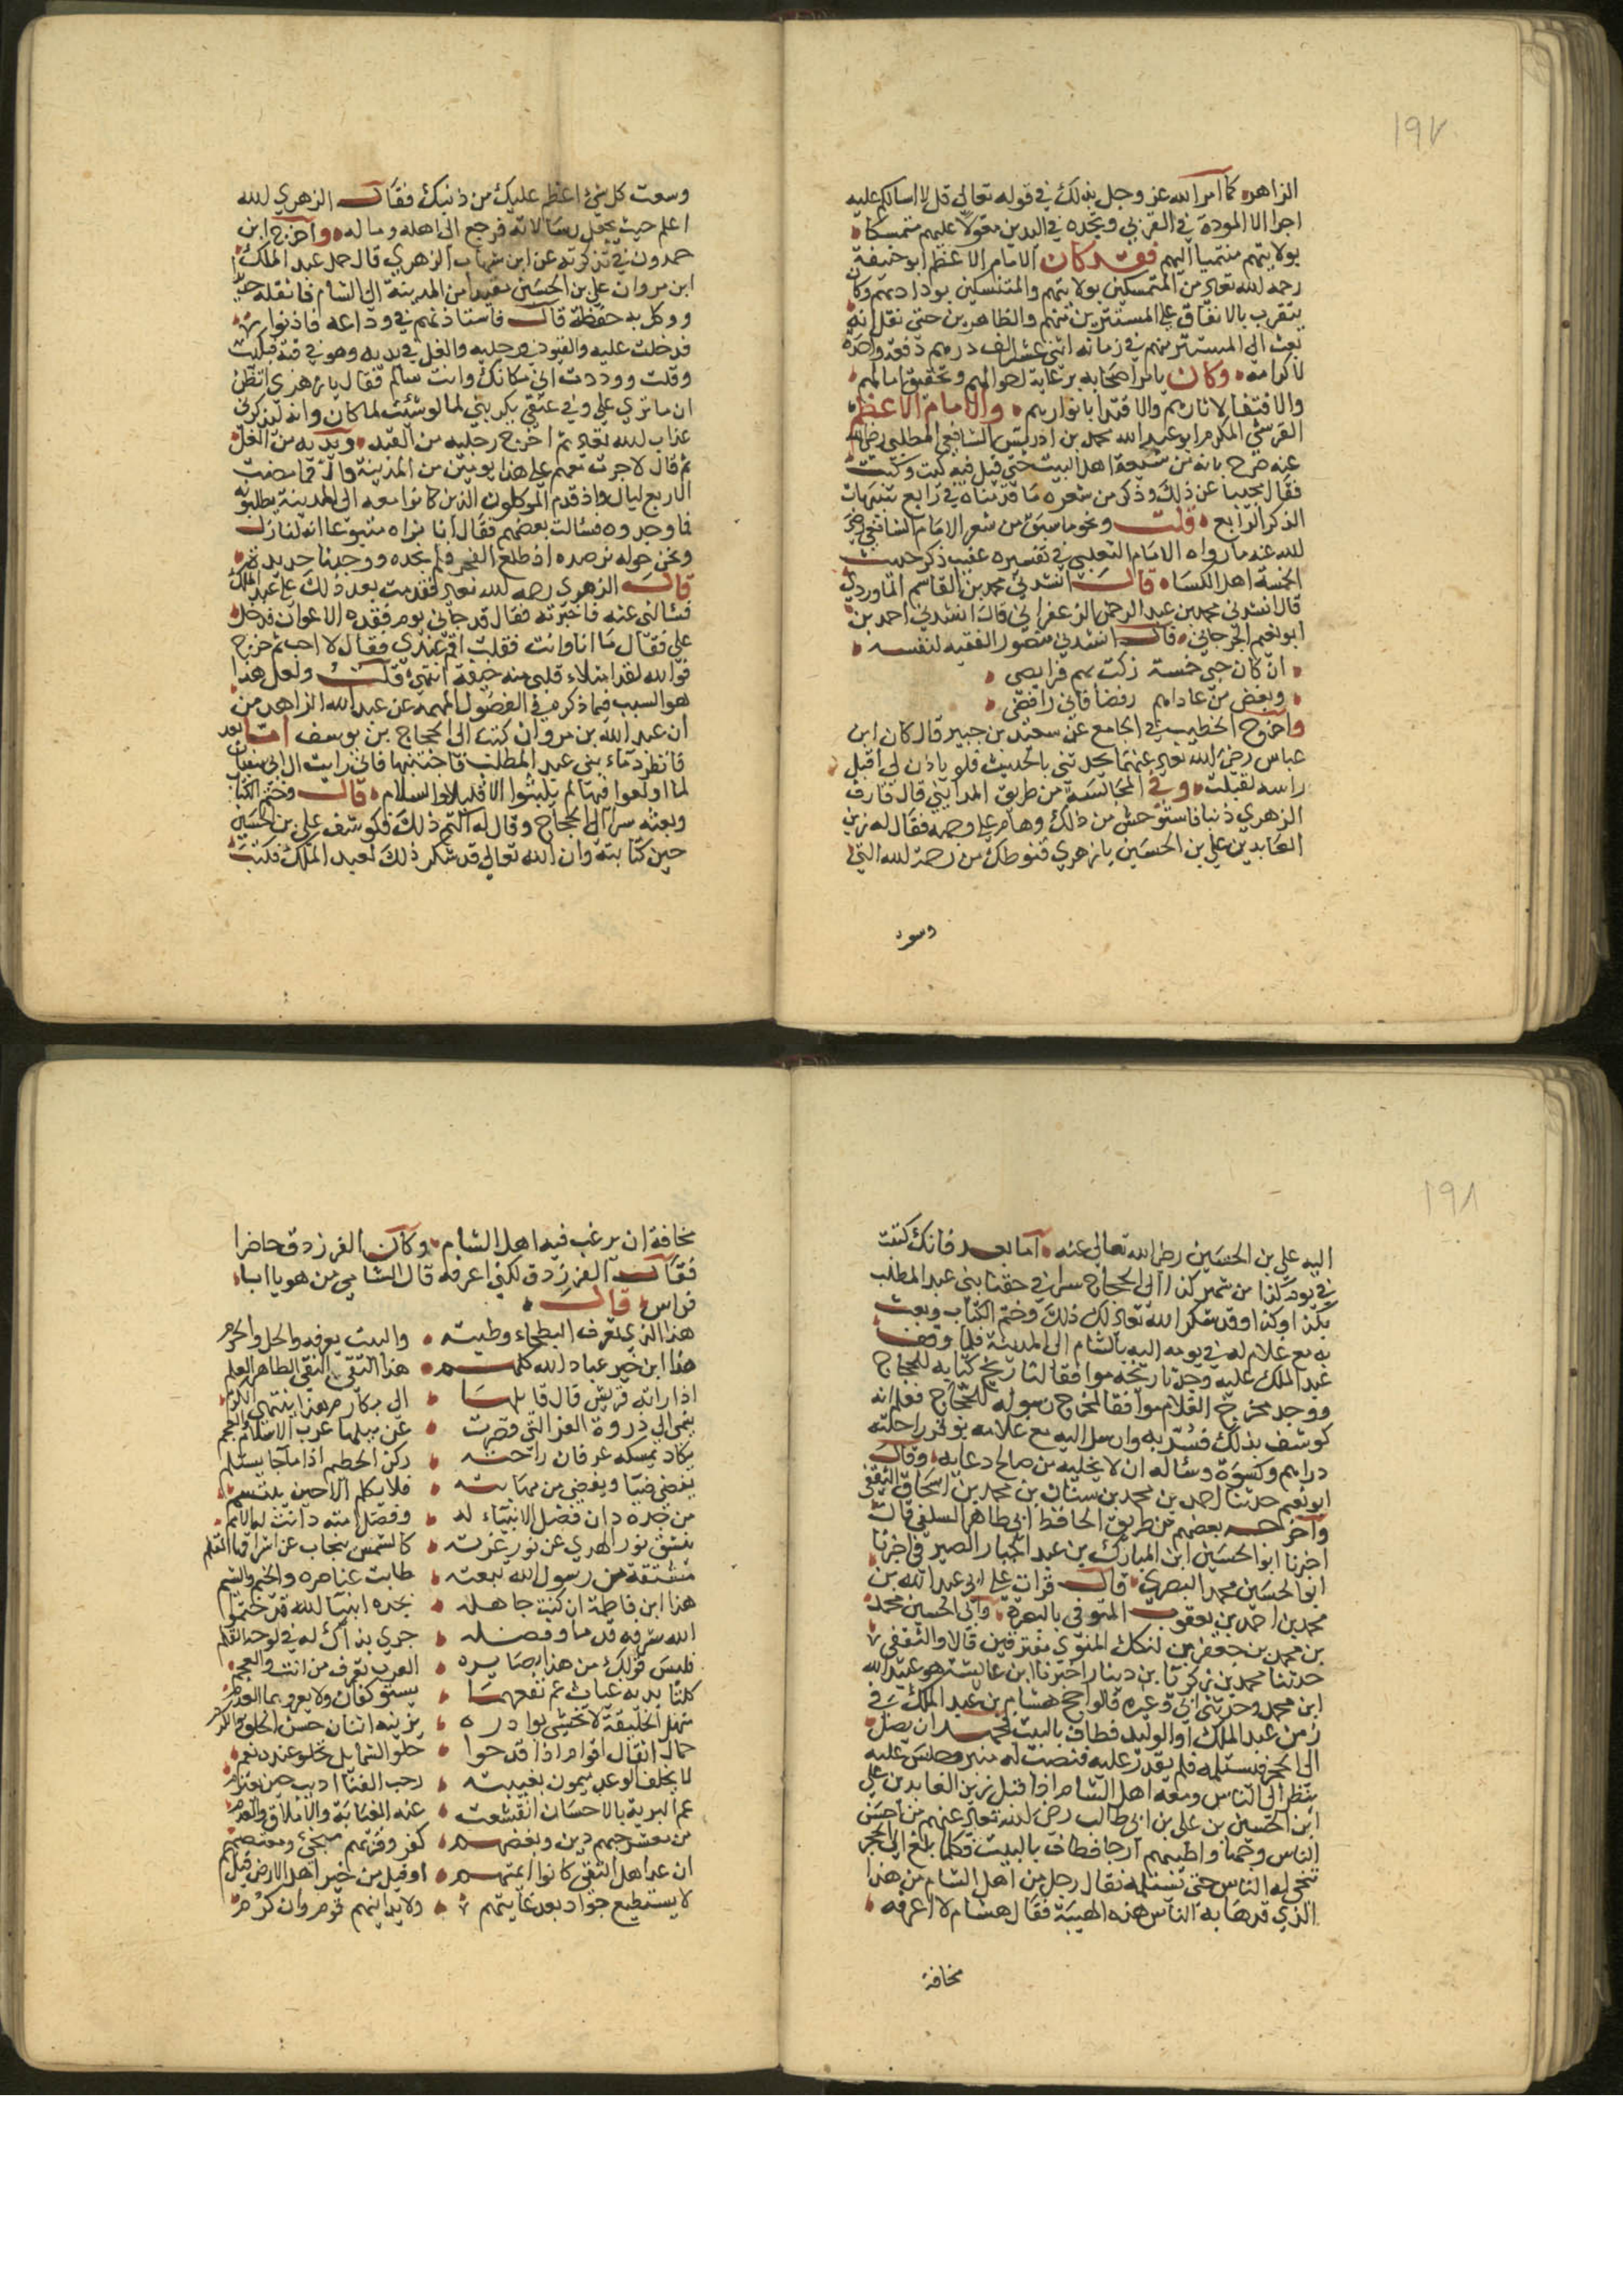 ١٩٧
الزاهره كما امر الله عز وجل بذلك في قوله تعالى قل لا اسالكم عليه
اجرا الا المودة في القربى وتجده في الدين معولا عليهم متمسكا
بولايتهم منتميا اليهم فقد كان الامام الاعظم ابو حنيفة
رحمه الله تعالى من المتمسكين بولايتهم والمتنسكين بودادهم وكان
يتقرب بالانفاق على المستترين منهم والظاهرين حتى نقل انه
بعث الى المستتر منهم في زمانه اثني عشر الف درهم دفعة واحدة
لاكرامه وكان يامر اصحابه برعاية احوالهم وتحقيق امالهم
والاقتفا لاثارهم والاقتدا بانوارهم والامام الاعظم
القرشي المكرم ابو عبد الله محمد بن ادريس الشافعي المطلبي رضي الله
عنه صرح بانه من شيعة اهل البيت حتى قيل فيه كيت وكيت
فقال مجيبا عن ذلك وذكر من شعره ما قدمناه في رابع تنبيهات
الذكر الرابع قلت ونحو ما سبق من شعر الامام الشافعي رضي
الله عنه ما رواه الامام الثعلبي في تفسيره عقيب ذكر حديث
الخمسة اهل الكساء قال انشدني محمد بن القاسم الماوردي
قال انشدني محمد بن عبد الرحمن الزعفراني قال انشدني احمد بن
ابو نعيم الجرجاني قال انشدني منصور الفقيه لنفسه
ان كان حبي خمسة زكت بهم فرايضي
وبغض من عاداهم رفضا فاني رافضي
واخرج الخطيب في الجامع عن سعيد بن جبير قال كان ابن
عباس رضي الله تعالى عنهما يحدثني بالحديث فلو ياذن لي اقبل
راسه لقبلت وفي المجالسة من طريق المدايني قال قارف
الزهري ذنبا فاستوحش من ذلك وهام على وجهه فقال له زين
العابدين علي بن الحسين يا زهري قنوطك من رحمة الله التي
وسعت
وسعت كل شيء اعظم عليك من ذنبك فقال الزهري الله
اعلم حيث يجعل رسالاته فرجع الى اهله وماله واخرج ابن
حمدون في تذكرته عن ابن شهاب الزهري قال حمل عبد الملك
ابن مروان علي بن الحسين مقيدا من المدينة الى الشام فاثقله حديدا
ووكل به حفظة قال فاستاذنتهم في وداعه فاذنوا
فدخلت عليه والقيود في رجليه والغل في يديه وهو في قبة فبكيت
وقلت ووددت اني مكانك وانت سالم فقال يا زهري اتظن
ان ما ترى علي وفي عنقي يكربني لما لو شئت لما كان وانه ليذكرني
عذاب الله تعالى ثم اخرج رجليه من القيد ويديه من الغل
ثم قال لاجزت معهم على هذا يومين من المدينة قال فما مضت
اربع ليال واذ قدم الموكلون الذين كانوا معه الى المدينة يطلبونه
فما وجدوه فسالت بعضهم فقال انا نراه متبوعا انه لنازل
ونحن حوله نرصده اذ طلع الفجر فلم نجده ووجدنا حديده
قال الزهري رحمه الله تعالى فقدمت بعد ذلك على عبد الملك
فسالني عنه فاخبرته فقال قد جاني يوم فقده الاعوان فدخل
علي فقال ما انا وانت فقلت اقم عندي فقال لا احب ثم خرج
فوالله لقد امتلاء قلبي منه خيفة انتهى قلت ولعل هذا
هو السبب فيما ذكر في الفصول المهمه عن عبد الله الزاهد من
ان عبد الله بن مروان كتب الى الحجاج بن يوسف اما بعد
فانظر دماء بني عبد المطلب فاجتنبها فاني رايت ال ابي سفيان
لما اولعوا فيها لم يلبثوا الا قليلا والسلام قال وختم الكتاب
وبعثه سرا الى الحجاج وقال له اكتم ذلك فكوشف علي بن الحسين
حين كتابته وان الله تعالى قد شكر ذلك لعبد الملك فكتب
١٩٨
اليه علي بن الحسين رضي الله تعالى عنه اما بعد فانك كتبت
في يوم كذا من شهر كذا الى الحجاج سرا في حقنا بني عبد المطلب
بكذا وكذا وقد شكر الله تعالى لك ذلك وختم الكتاب وبعث
به مع غلام له في يومه اليه بالشام الى المدينة فلما وقف
عبد الملك عليه وجد تاريخه موافقا لتاريخ كتابه للحجاج
ووجد مخرج الغلام موافقا لمخرج رسوله للحجاج فعلم انه
كوشف بذلك فسر به وارسل اليه مع غلامه بوقر راحلته
دراهم وكسوة وساله ان لا يخليه من صالح دعايه وقال
ابو نعيم حدثنا احمد بن محمد بن سنان بن محمد بن اسحاق الثقفي
واخرجه بعضهم من طريق الحافظ ابي طاهر السلفي قال
اخبرنا ابو الحسين ابن المبارك بن عبد الجبار الصيرفي اخبرنا
ابو الحسين محمد البصري قال قرات على ابي عبد الله بن
محمد بن احمد بن يعقوب المتوفي بالبصرة وابي الحسين محمد
بن محمد بن جعفر بن لنكك المنوي مفترقين قالا والثقفي
حدثنا محمد بن زكريا بن دينار اخبرنا ابن عائشة هو عبيد الله
ابن محمد وحدثني ابي وغيره قالوا حج هشام بن عبد الملك في
زمن عبد الملك او الوليد فطاف بالبيت فجهد ان يصل
الى الحجر فيستلمه فلم يقدر عليه فنصب له منبر وجلس عليه
ينظر الى الناس ومعه اهل الشام اذا قبل زين العابدين علي
ابن الحسين بن علي بن ابي طالب رضي الله تعالى عنهم من احسن
الناس وجها واطيبهم ارجا فطاف بالبيت فكلما بلغ الى الحجر
تنحى له الناس حتى تستلمه فقال رجل من اهل الشام من هذا
الذي قد هابه الناس هذه الهيبة فقال هشام لا اعرفه
مخافة
مخافة ان يرغب فيه اهل الشام وكان الفرزدق حاضرا
فقال الفرزدق لكني اعرفه قال الشامي من هو يا ابا
فراس قال
هذا الذي تعرف البطحاء وطيته والبيت يعرفه والحل والحرم
هذا ابن خير عباد الله كلهم هذا التقي النقي الطاهر العلم
اذا راته قريش قال قايلها الى مكارم هذا ينتهي الكرم
ينمى الى ذروة العز التي قصرت عن نيلها عرب الاسلام والعجم
يكاد يمسكه عرفان راحته ركن الحطيم اذا ما جا يستلم
يغضي حيا ويغضى من مهابته فلا يكلم الا حين يبتسم
من جده دان فضل الانبياء له وفضل امته دانت له الامم
ينشق نور الهدى عن نور غرته كالشمس ينجاب عن اشراقها القتم
مشتقة من رسول الله نبعته طابت عناصره والخيم والشيم
هذا ابن فاطمة ان كنت جاهله بجده انبيا الله قد ختموا
الله شرفه قدما وفضله جرى بذاك له في لوحه القلم
فليس قولك من هذا بضايره العرب تعرف من انت والعجم
كلتا يديه غياث عم نفعهما يستوكفان ولا يعروهما العدم
سهل الخليقة لا تخشى بوادره يزينه اثنان حسن الخلق والكرم
حمال اثقال اقوام اذا قدحوا حلو الشمايل تحلو عنده نعم
لا يخلف الوعد ميمون بغيبته رحب الفنا اريب حين يعتزم
عم البرية بالاحسان انقشعت عنه الغيابة والاملاق والعدم
من معشر حبهم دين وبغضهم كفر وقربهم منجى ومعتصم
ان عد اهل التقى كانوا ائمتهم او قيل من خير اهل الارض قيل هم
لا يستطيع جواد بعد غايتهم ولا يدانيهم قوم وان كرموا